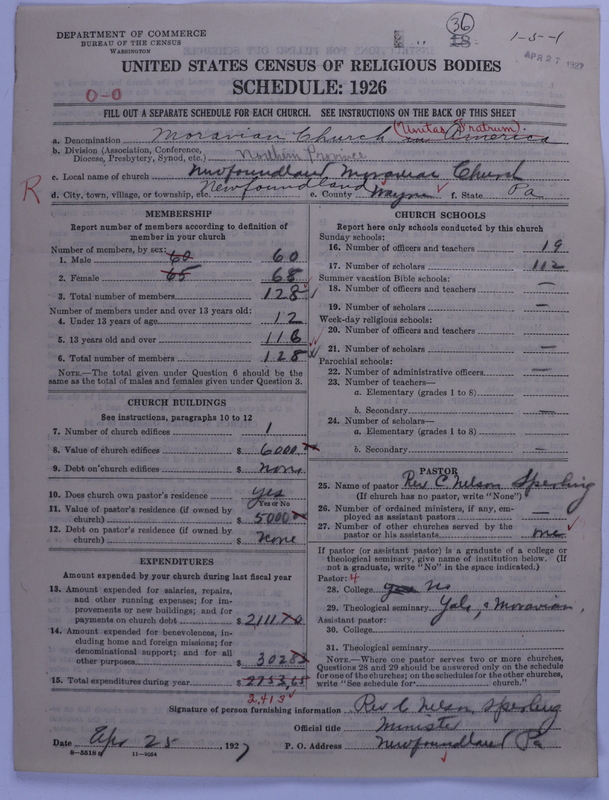 DEPARTMENT OF COMMERCE
BUREAU OF THE CENSUS
WASHINGTON
36
18
1-5-1
APR 27 1927
UNITED STATES CENSUS OF RELIGIOUS BODIES
SCHEDULE: 1926
0-0
FILL OUT A SEPARATE SCHEDULE FOR EACH CHURCH. SEE INSTRUCTIONS ON THE BACK OF THIS SHEET
a. Denomination Moravian Church in America (Unitas Fratrum).
b. Division (Association, Conference,
Diocese, Presbytery, Synod, etc.) Northern Province
c. Local name of church Newfoundland Moravian Church
R
d. City, town, village, or township, etc. Newfoundland e. County Wayne f. State Pa
MEMBERSHIP
Report number of members according to definition of
member in your church
Number of members, by sex:
1. Male 60 60
2. Female 65 68
3. Total number of members 128
Number of members under and over 13 years old:
4. Under 13 years of age 12
5. 13 years old and over 116
6. Total number of members 128
NOTE.—The total given under Question 6 should be
same as the total of males and females given under Question 3.
CHURCH BUILDINGS
See instructions, paragraphs 10 to 12
7. Number of church edifices 1
8. Value of church edifices $ 6000
9. Debt on church edifices $ none
10. Does church own pastor's residence yes
Yes or No
11. Value of pastor's residence (if owned by
church) $ 5000
12. Debt on pastor's residence (if owned by
church) $ none
EXPENDITURES
Amount expended by your church during last fiscal year
13. Amount expended for salaries, repairs,
and other running expenses; for im-
provements or new buildings; and for
payments on church debt $ 2111
14. Amount expended for benevolences, in-
cluding home and foreign missions; for
denominational support; and for all
other purposes $ 302
15. Total expenditures during year $
2,413
CHURCH SCHOOLS
Report here only schools conducted by this church
Sunday schools:
16. Number of officers and teachers 19
17. Number of scholars 112
Summer vacation Bible schools:
18. Number of officers and teachers —
19. Number of scholars —
Week-day religious schools:
20. Number of officers and teachers
21. Number of scholars —
Parochial schools:
22. Number of administrative officers —
23. Number of teachers—
a. Elementary (grades 1 to 8)
b. Secondary —
24. Number of scholars—
a. Elementary (grades 1 to 8)
b. Secondary —
PASTOR
25. Name of pastor Rev. C. Nelson Sperling
(If church has no pastor, write "None")
26. Number of ordained ministers, if any, em-
ployed as assistant pastors —
27. Number of other churches served by the
pastor or his assistants one
If pastor (or assistant pastor) is a graduate of a college or
theological seminary, give name of institution below. (If
not a graduate, write "No" in the space indicated.)
Pastor: 4
28. College No
29. Theological seminary Yale, & Moravian,
Assistant pastor:
30. College
31. Theological seminary
NOTE.—Where one pastor serves two or more churches,
Questions 28 and 29 should be answered only on the schedule
for one of the churches; on the schedules for the other churches,
write "See schedule for church."
Signature of person furnishing information Rev C Nelson Sperling
Official title Minister
Date Apr 25, 1927 P. O. Address Newfoundland Pa
8-5518 a 11-9054